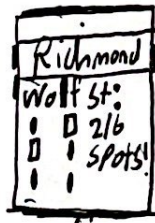 Richmond
Wolf St:
2/6
spots!